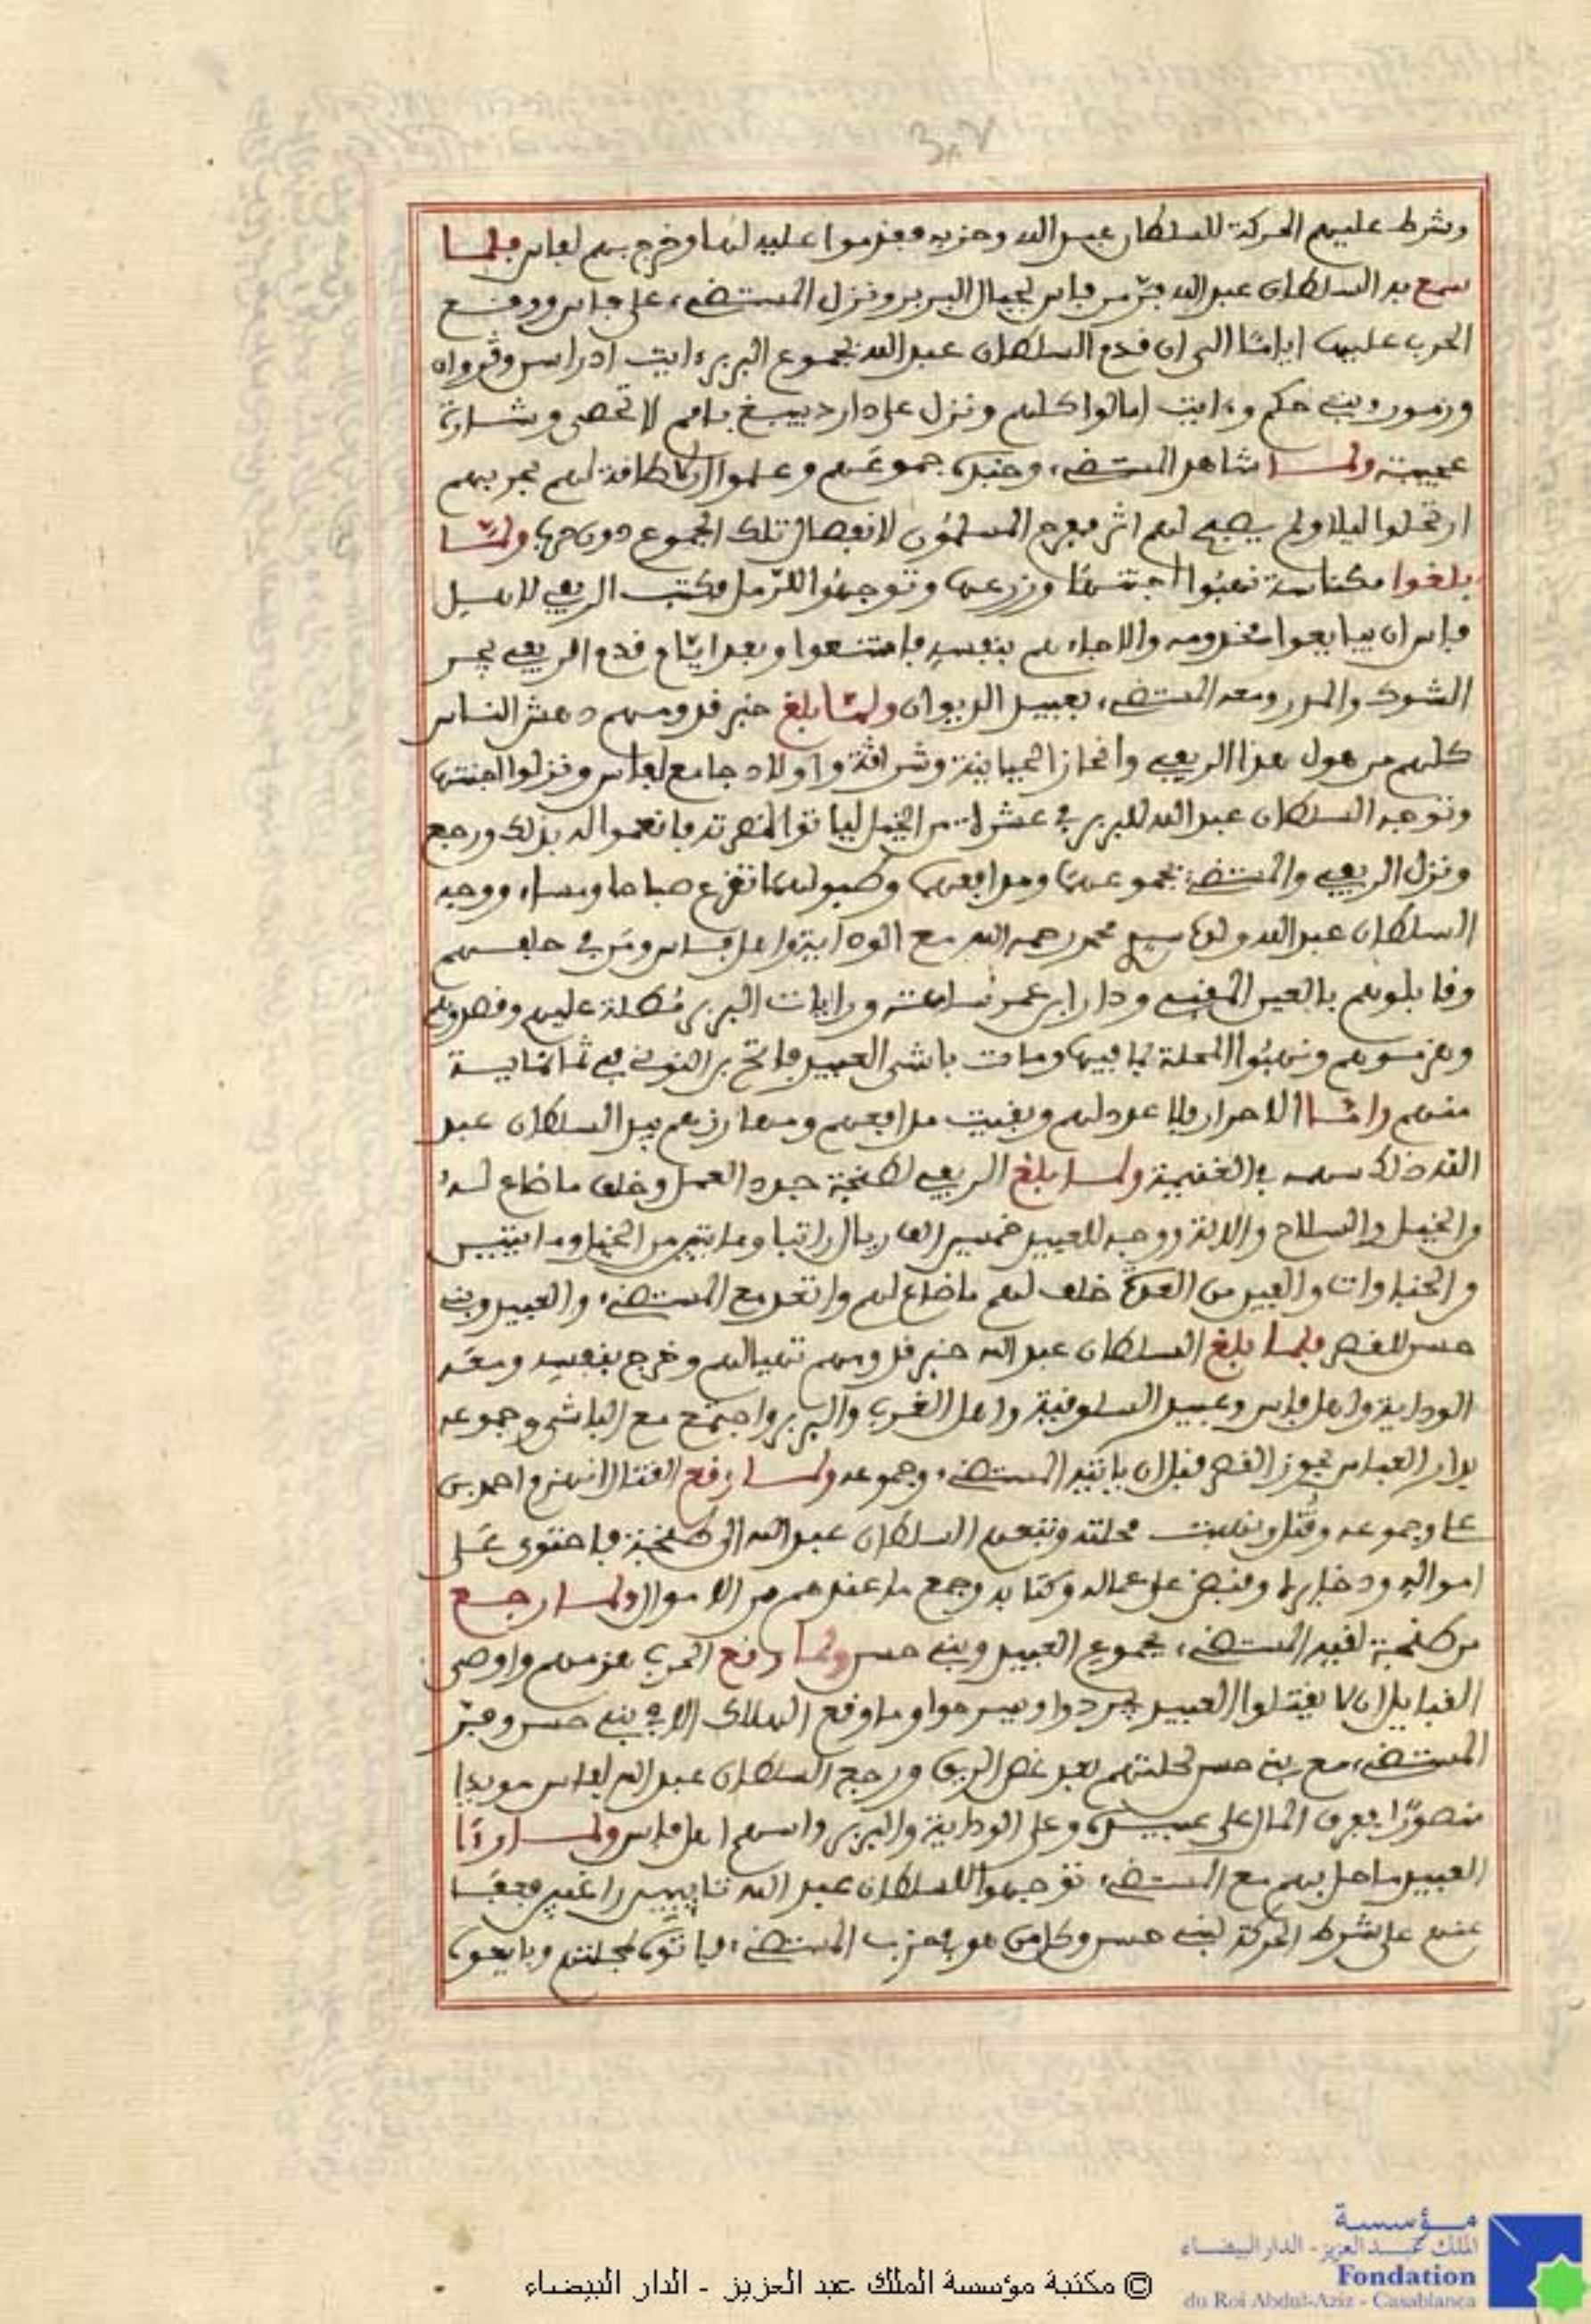 وشرط عليهم الحركة للسلطان عبد الله وحزبه فعزموا عليه لها وخرج بهم لفاس فلما
سمع به السلطان عبد الله فرّ من فاس لجبال البربر ونزل المستضيء على فاس ووقع
الحرب عليها اياما الى ان قدم السلطان عبد الله بجموع البربر ءايت ادراسن وڭروان
وزمور وبني حكم وءايت امالوا كلهم ونزل على دار دبيبغ بامم لا تحصى وشارة
عجيبة ولما شاهد المستضيء وحنده جموعهم وعلموا ان لا طاقة لهم بحربهم
ارتحلوا ليلا ولم يصبح لهم اثر ففرح المسلمون لانفصال تلك الجموع دون حرب ولما
بلغوا مكناسة نهبوا اجنتها وزرعها وتوجهوا للرمل فكتب الريفي لاهل
فاس ان يبايعوا مخدومه والا جاءهم بنفسه فامتنعوا وبعد ايام قدم الريفي يجر
الشوك والمدر ومعه المستضيء بعبيد الديوان ولما بلغ خبر قدومهم دهش الناس
كلهم من هول هذا الريفي وانحاز الحياينة وشراڭة واولاد جامع لفاس ونزلوا اجنتها
وتوجه السلطان عبد الله للبربر في عشرة من الخيل لياتوا لنصرته فانعموا له بذلك ورجع
ونزل الريفي والمستضيء بجموعهما ومدافعهما وطبولهما تفزع صباحا ومساء ووجه
السلطان عبد الله ولده سيدي محمد رحمه الله مع الوداية واهل فاس ومن في حلفهم
وقابلوهم بالعين المقبي ودار ابن عمر ساعة ورايات البربر مطلة عليهم وقصدوهم
وهزموهم ونهبوا المحلة بما فيها ومات باشى العبيد فاتح بن النوني في ثمانماية
منهم واما الاحرار فلا عدد لهم وبقيت مدافعهم ومهارزهم بيد السلطان عبد
الله ذلك سهمه في الغنيمة ولما بلغ الريفي لطنجة جدد العمل وخلف ما ضاع له
من الخيل والسلاح والالة ووجه للعبيد خمسين الف ريال راتبا ومايتين من الخيل ومايتين
من الخباوات والفين من العدة خلف لهم ما ضاع لهم واتعد مع المستضيء والعبيد وبني
حسن للقصر فلما بلغ السلطان عبد الله خبر قدومهم تهيا لهم وخرج بنفسه ومعه
الوداية واهل فاس وعبيد السلوقية واهل الغرب والبربر واجتمع مع الباشى وجموعه
بدار العباس بحوز القصر قبل ان ياتيه المستضيء وجموعه ولما وقع القتال انهزم احمد بن
علي وجموعه وقتل ونهبت محلته وتبعهم السلطان عبد الله الى طنجة فاحتوى على
امواله وذخايره وقبض على عماله وكتابه وجمع ما عندهم من الاموال ولما رجع
من طنجة لقيه المستضيء بجموع العبيد وبني حسن ولما وقع الحرب هزمهم واوصى
القبايل ان لا يقتلوا العبيد يجردوا ويسرحوا وما وقع الهلاك الا في بني حسن وفرّ
المستضيء مع بني حسن لحلتهم بعد غص الريق ورجع السلطان عبد الله لفاس مويدا
منصورا ففرق المال على عبيده وعلى الوداية والبربر واسهم اهل فاس ولما رءا
العبيد ما حل بهم مع المستضيء توجهوا للسلطان عبد الله تايبين راغبين فعفا
عنهم على شرط الحركة لبني حسن وكل من هو في حزب المستضيء فياتوه لمحلته وبايعوه
مؤسسة
الملك عبد العزيز - الدار البيضاء
Fondation
du Roi Abdul-Aziz - Casablanca
© مكتبة مؤسسة الملك عبد العزيز - الدار البيضاء